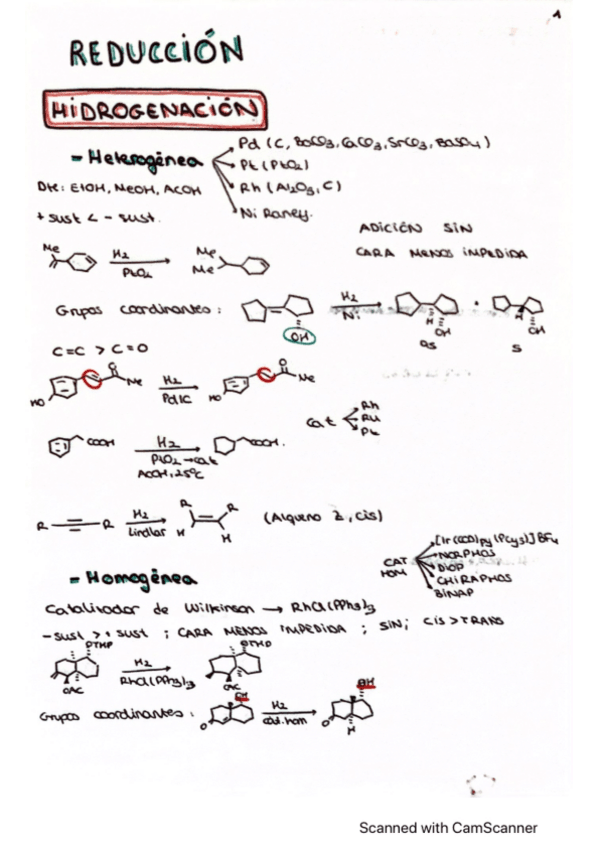 1
REDUCCIÓN
HIDROGENACIÓN
- Heterogénea
Pd (C, BaCO3, CaCO3, SrCO3, BaSO4)
Pt (PtO2)
Rh (Al2O3, C)
Ni Raney.
Dte: EtOH, MeOH, AcOH
+ sust < - sust.
ADICIÓN SIN
CARA MENOS IMPEDIDA
Me H2 PtO2 Me Me
Grupos coordinantes: OH H2 Ni H OH H OH
OS S
C=C > C=O
HO O Me H2 Pd/C HO O Me
Cat Rh
Ru
Pt
COOH H2 PtO2 → cat COOH.
AcOH, 25ºC
R R H2 Lindlar R R H H (Alqueno Z, cis)
CAT HOM
[Ir(COD)py(PCy3)]BF4
NORPHOS
DIOP
CHIRAPHOS
BINAP
- Homogénea
Catalizador de Wilkinson → RhCl(PPh3)3
- sust > + sust ; CARA MENOS IMPEDIDA ; SIN; CIS > TRANS
OTHP OAc H2 RhCl(PPh3)3 OTHP OAc
Grupos coordinantes: OH O H2 cat. hom OH O H
Scanned with CamScanner